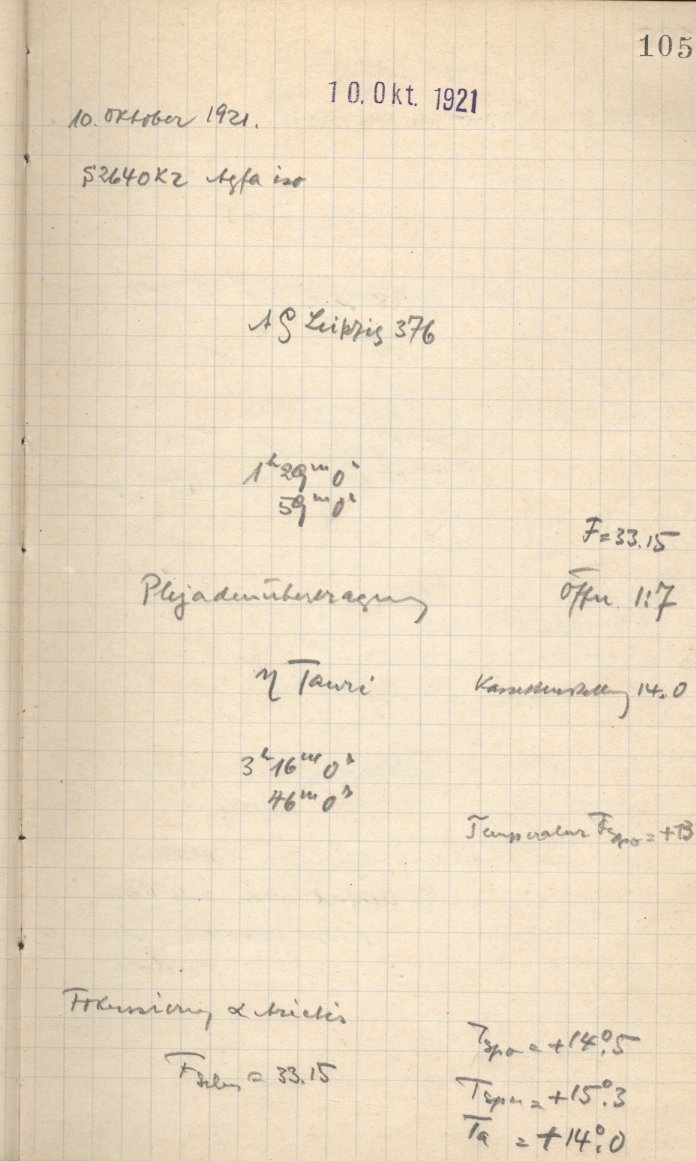 105
10. Okt. 1921
10. Oktober 1921.
S2640 K2 Agfa iso
AG Leipzig 376
1h 29m 0s
59m 0s
F=33.15
Plejadenübertragung
Öffn. 1:7
η Tauri
Kassettenstellung 14.0
3h 16m 0s
46m 0s
Temperatur = +13
Fokussierung α Arietis
Tspo = +14°.5
= 33.15
Tspu = +15°.3
Ta = +14°.0